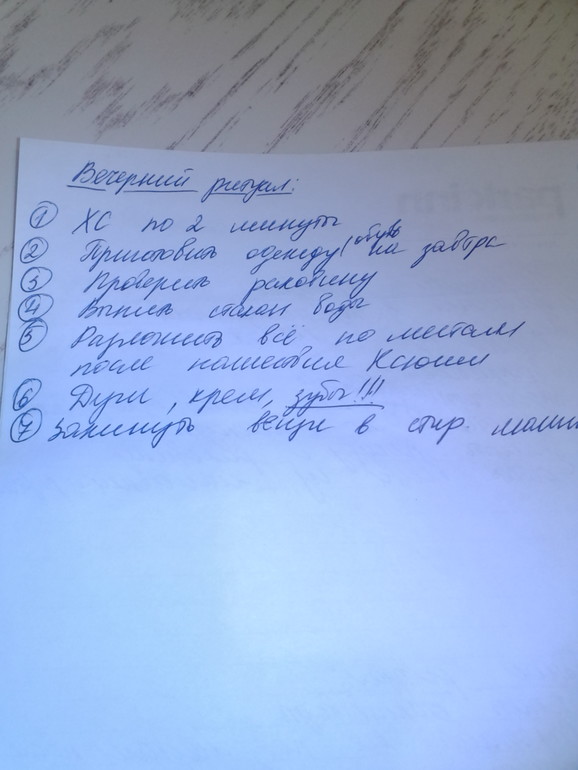 Вечерний ритуал:
① ХС по 2 минуты
② Приготовить одежду/обувь на завтра
③ Проверить раковину
④ Выпить стакан воды
⑤ Разложить всё по местам
после нашествия Ксюши
⑥ Душ, крем, зубы!!!!
⑦ Закинуть вещи в стир. маши